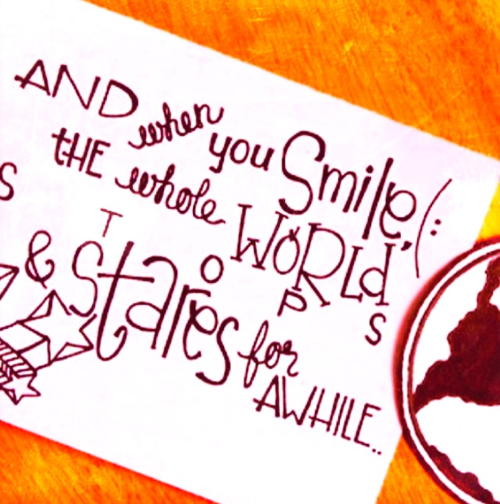 AND when you Smile, (:
THE whole WORLd
S
STOPS
& Stares for
AWHILE..